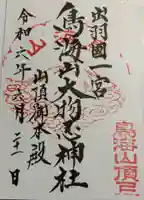 出羽國一宮
鳥海山大物忌神社
山頂御本殿
令和六年八月二十一日
鳥海山頂